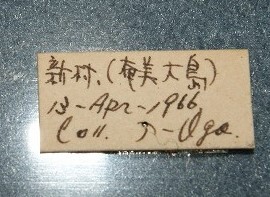 新村.(奄美大島)
13-Apr-1966
Coll. T-Oga.